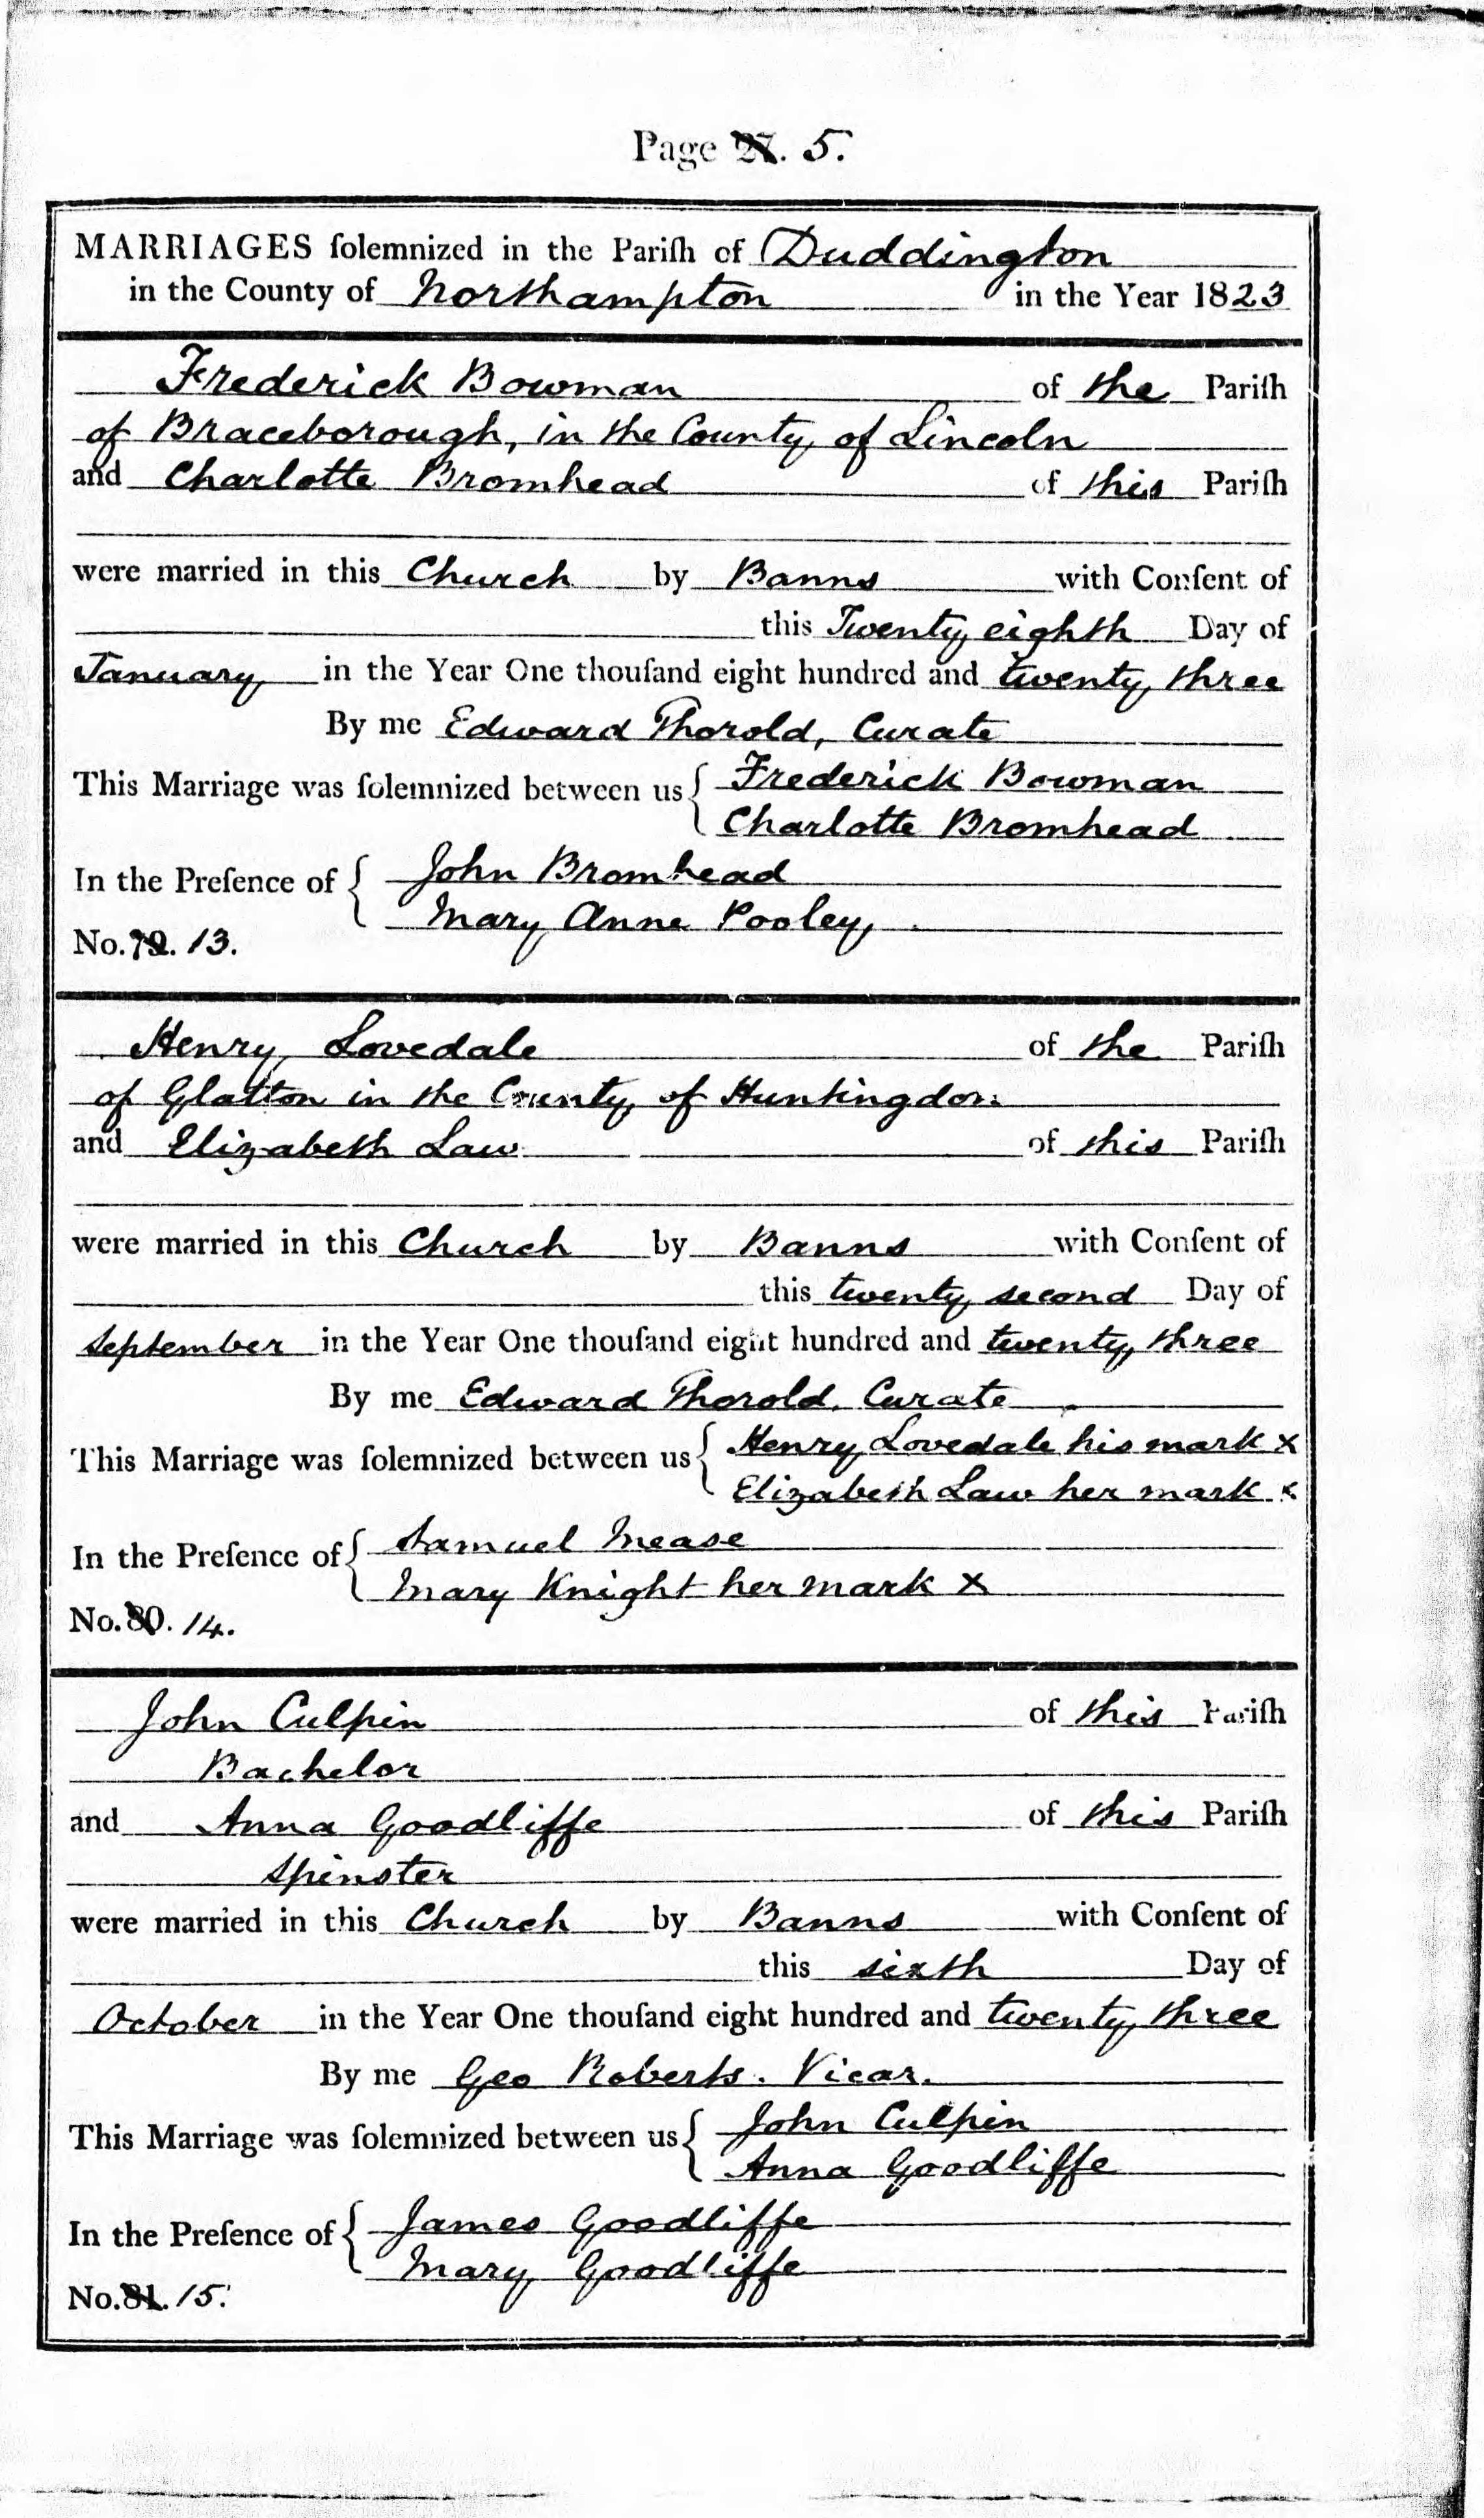 Page 27. 5.
MARRIAGES ſolemnized in the Pariſh of Duddington
in the County of Northampton in the Year 1823
Frederick Bowman of the Pariſh
of Braceborough, in the County of Lincoln
and Charlotte Bromhead of this Pariſh
were married in this Church by Banns with Conſent of
this Twenty eighth Day of
January in the Year One thouſand eight hundred and twenty three
By me Edward Thorold, Curate
This Marriage was ſolemnized between us { Frederick Bowman
Charlotte Bromhead
In the Preſence of { John Bromhead
Mary Anne Pooley
No. 79. 13.
Henry Lovedale of the Pariſh
of Glatton in the County of Huntingdon
and Elizabeth Law of this Pariſh
were married in this Church by Banns with Conſent of
this twenty second Day of
September in the Year One thouſand eight hundred and twenty three
By me Edward Thorold. Curate
This Marriage was ſolemnized between us { Henry Lovedale his mark x
Elizabeth Law her mark x
In the Preſence of { Samuel Mease
Mary Knight her mark x
No. 80. 14.
John Culpin of this Pariſh
Bachelor
and Anna Goodliffe of this Pariſh
Spinster
were married in this Church by Banns with Conſent of
this sixth Day of
October in the Year One thouſand eight hundred and twenty three
By me Geo Roberts. Vicar.
This Marriage was ſolemnized between us { John Culpin
Anna Goodliffe
In the Preſence of { James Goodliffe
Mary Goodliffe
No. 81. 15.